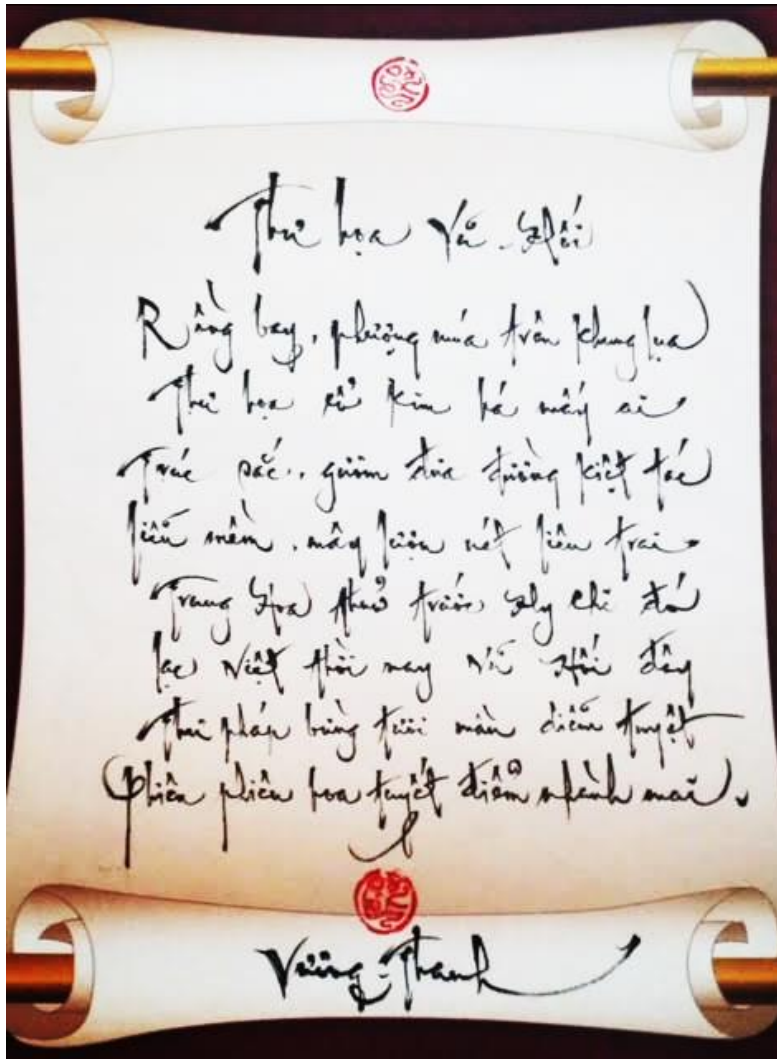 Thư họa Vũ Hối
Rồng bay, phượng múa trên khung lụa
Thư họa cổ kim há mấy ai
Trúc sắc, gươm đưa đường kiệt tác
Liễu mềm, mây lượn nét liêu trai
Trung Hoa thuở trước, Hy Chi đó
Lạc Việt thời nay Vũ Hối đây
Thư pháp bừng tươi màu diễm tuyệt
Phiên phiên hoa tuyết điểm nhành mai
Vương-Thanh